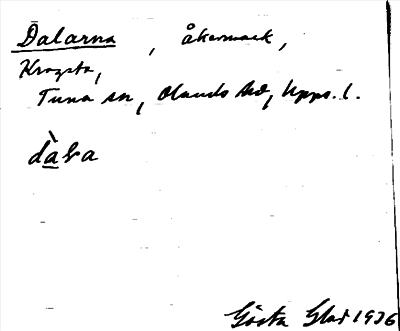 Dalarna, åkermark,
Kragsta,
Tuna sn, Olands hd, Upps. l.
dàɫa
Gösta Glad 1936